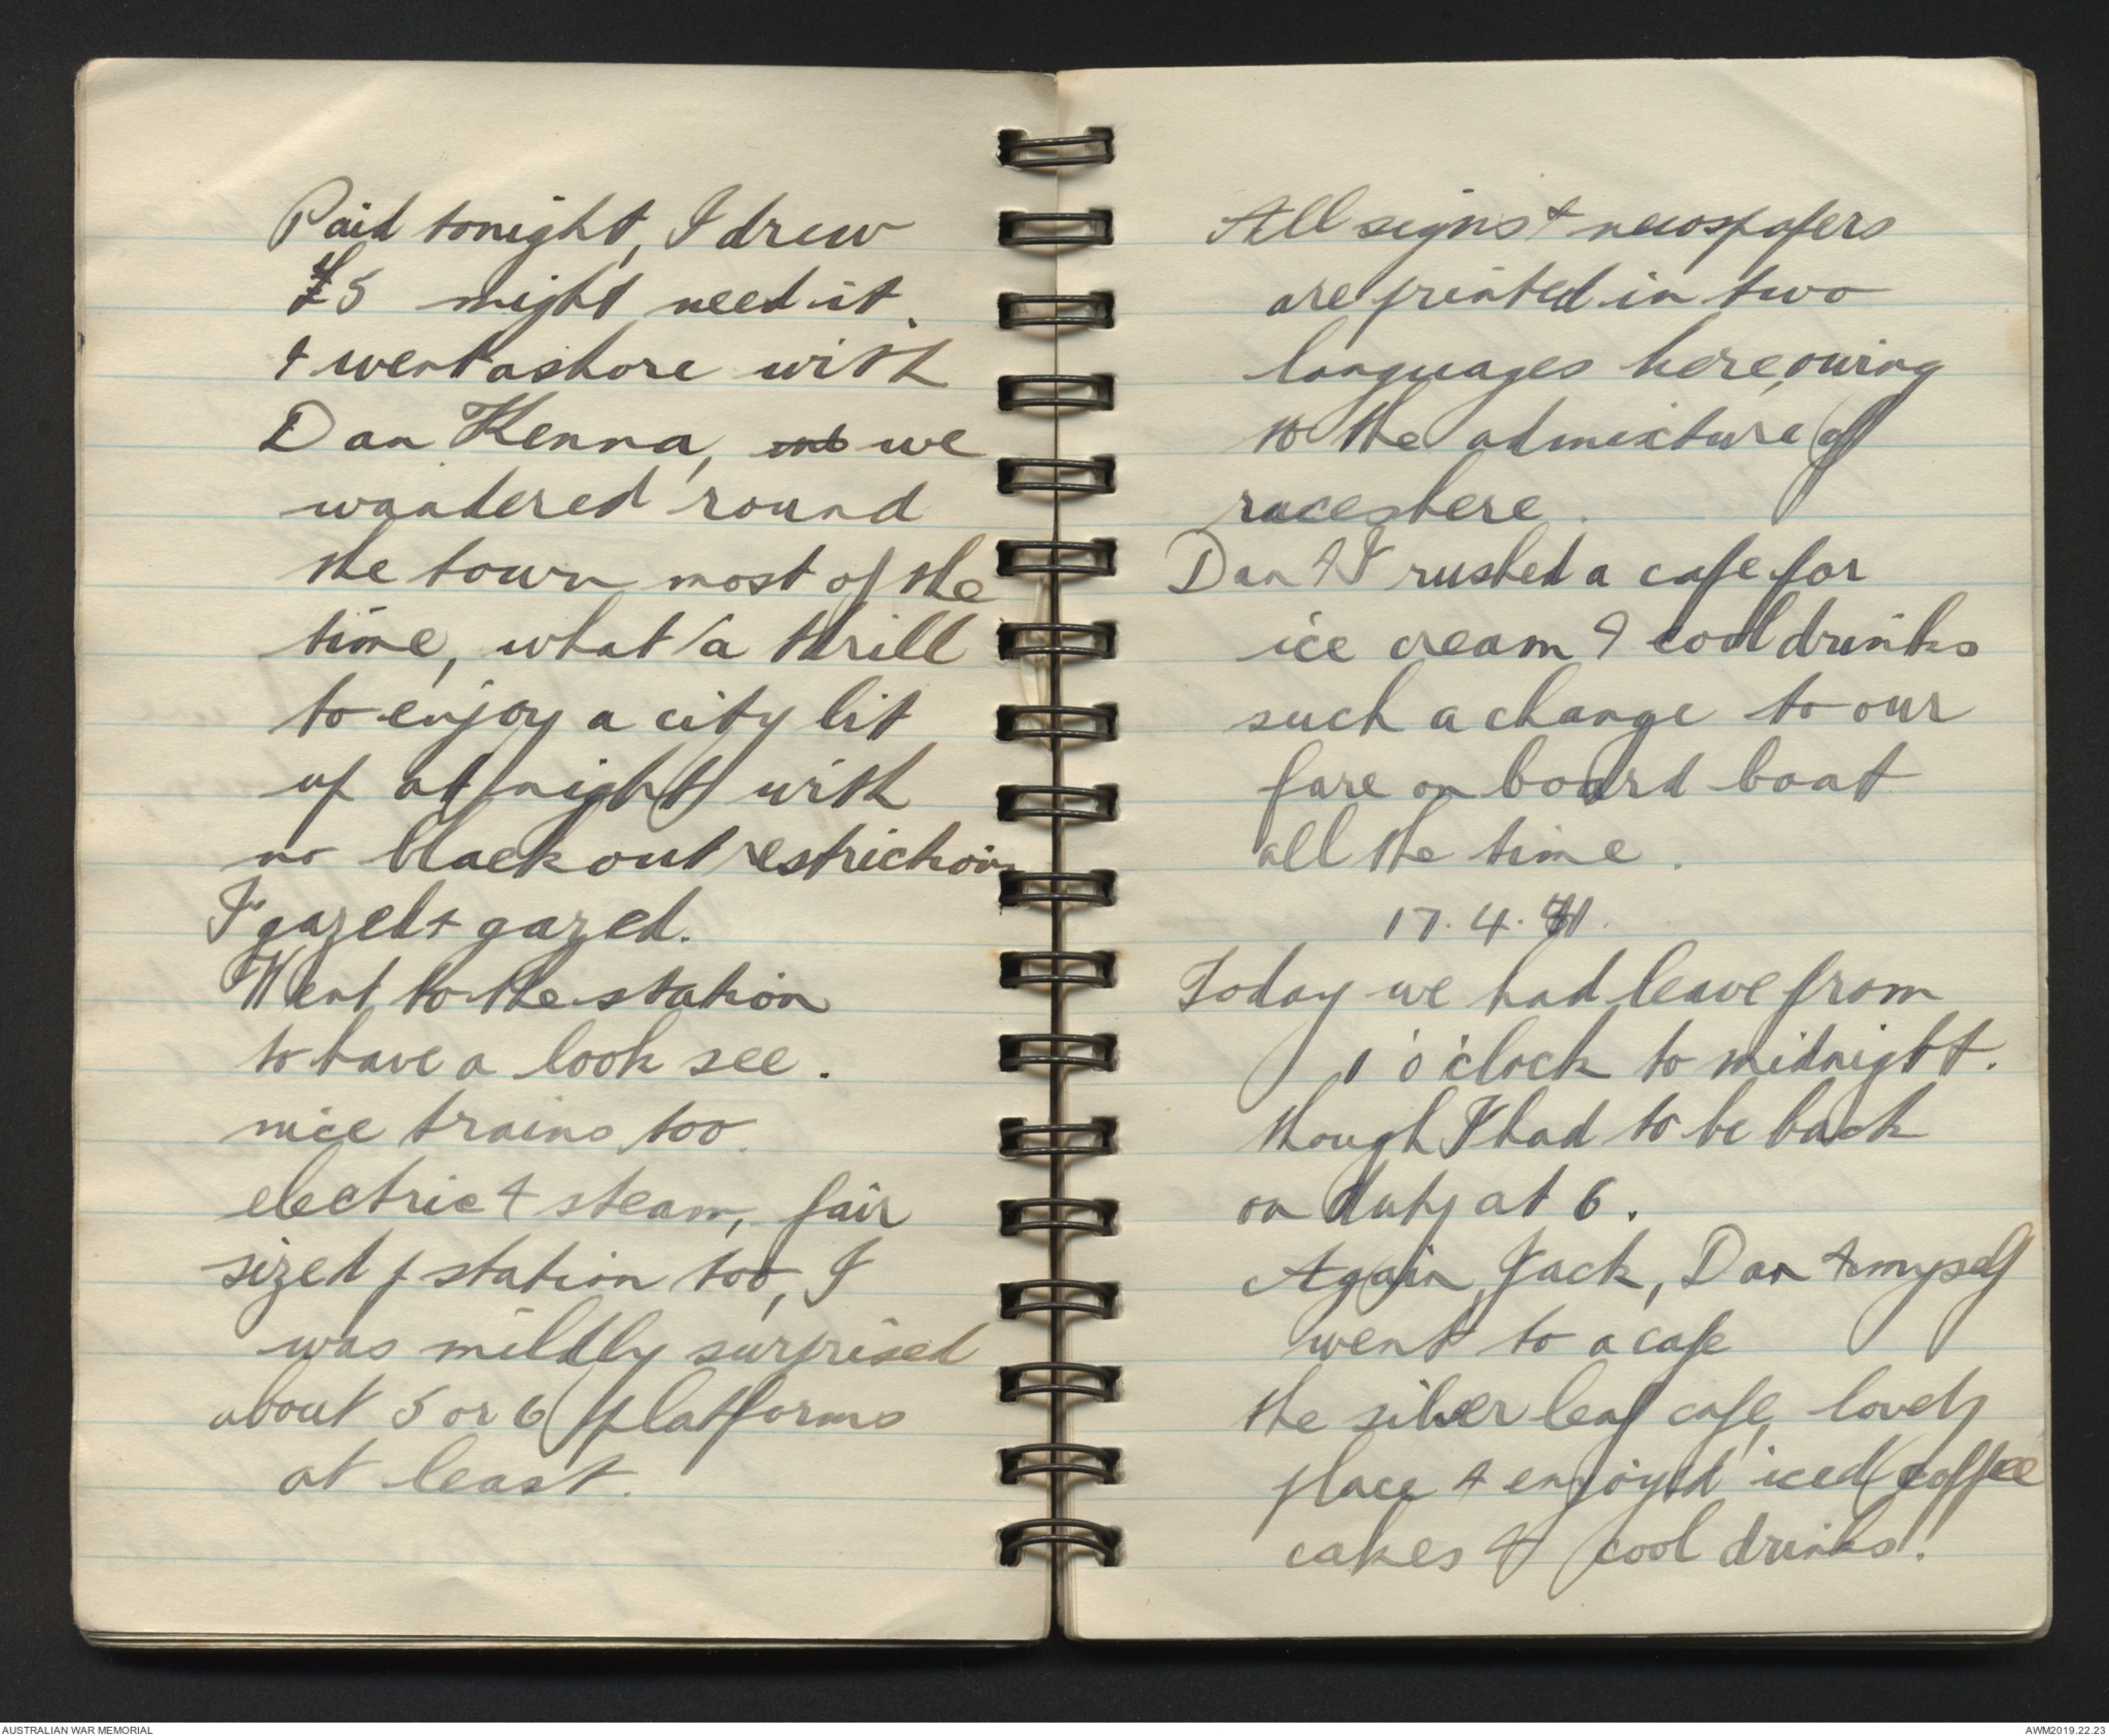 Paid tonight, I drew
£5 might need it.
I went ashore with
Dan Kenna, and we
wandered round
the town most of the
time, what a thrill
to enjoy a city lit
up at night with
no blackout restriction
I gazed & gazed.
Went to the station
to have a look see.
nice trains too.
electric & steam, fair
sized station too, I
was mildly surprised
about 5 or 6 platforms
at least.
All signs & newspapers
are printed in two
languages here, owing
to the admixture of
races here.
Dan & I rushed a cafe for
ice cream & cool drinks
such a change to our
fare on board boat
all the time.
17.4.41.
Today we had leave from
1 o'clock to midnight.
though I had to be back
on duty at 6.
Again, Jack, Dan & myself
went to a cafe
the silver leaf cafe, lovely
place & enjoy'd iced coffee
cakes & cool drinks.
AUSTRALIAN WAR MEMORIAL
AWM2019.22.23